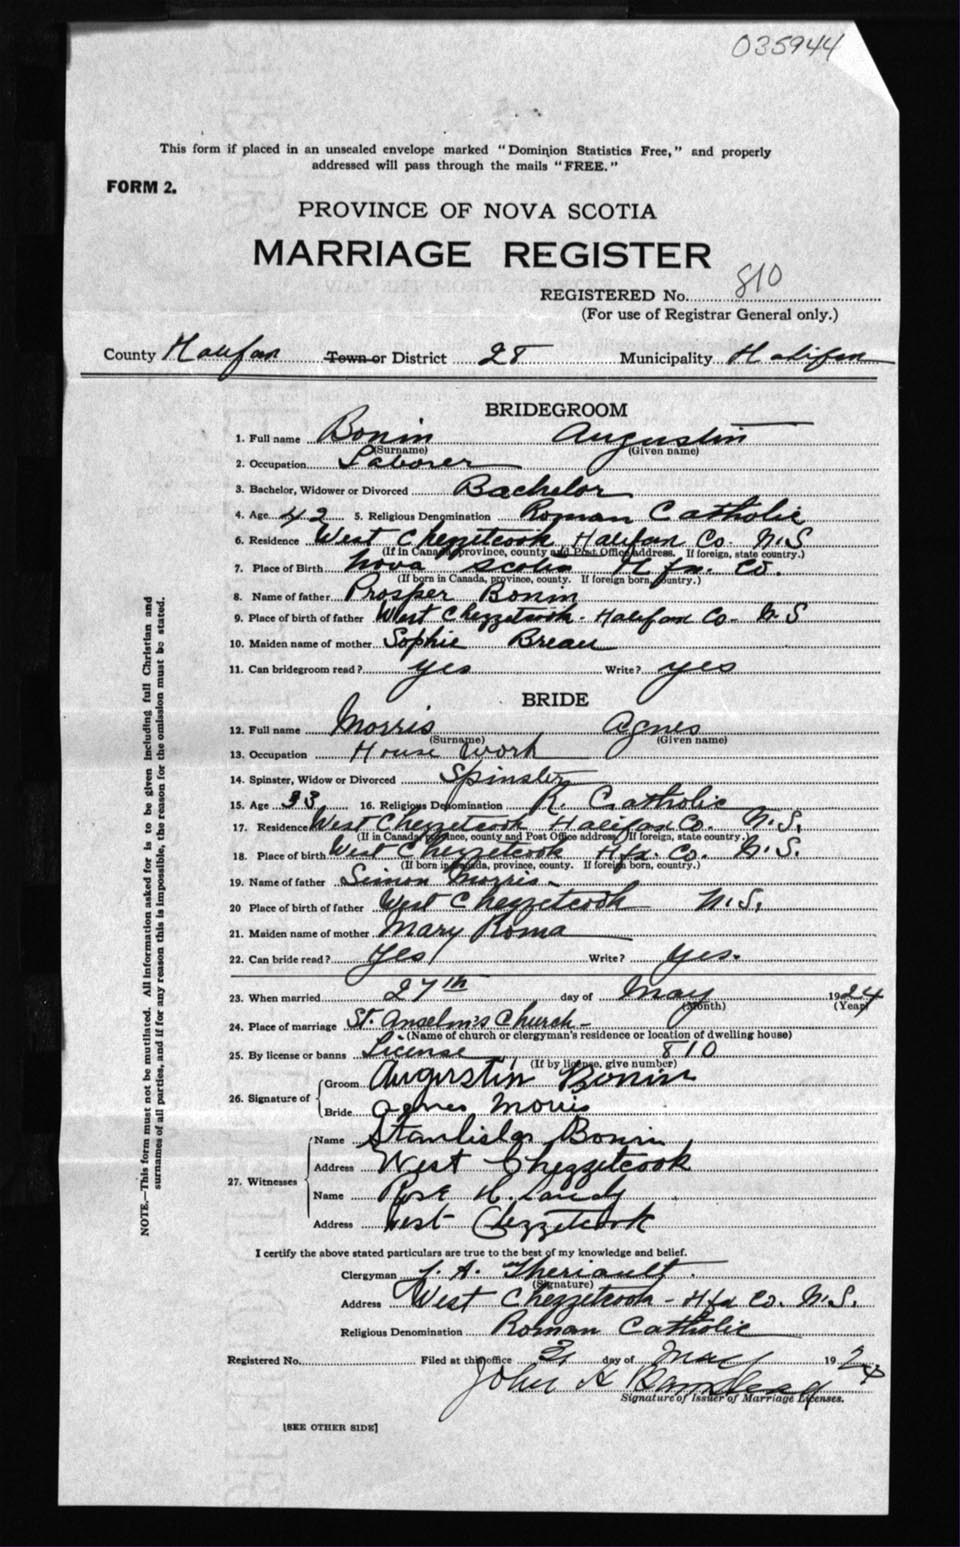 035944
This form if placed in an unsealed envelope marked "Dominion Statistics Free," and properly
addressed will pass through the mails "FREE."
FORM 2.
PROVINCE OF NOVA SCOTIA
MARRIAGE REGISTER
REGISTERED No. 810
(For use of Registrar General only.)
County Halifax Town or District 28 Municipality Halifax
BRIDEGROOM
1. Full name Bonin Augustin
(Surname) (Given name)
2. Occupation Laborer
3. Bachelor, Widower or Divorced Bachelor
4. Age 42 5. Religious Denomination Roman Catholic
6. Residence West Chezzetcook Halifax Co. N.S
(If in Canada, province, county and Post Office address. If foreign, state country.)
7. Place of Birth Nova Scotia Hfx. Co.
(If born in Canada, province, county. If foreign born, country.)
8. Name of father Prosper Bonin
9. Place of birth of father West Chezzetcook. Halifax Co. N.S
10. Maiden name of mother Sophie Breau
11. Can bridegroom read? yes Write? yes
BRIDE
12. Full name Morris Agnes
(Surname) (Given name)
13. Occupation House Work
14. Spinster, Widow or Divorced Spinster
15. Age 33 16. Religious Denomination R. Catholic
17. Residence West Chezzetcook Halifax Co. N.S.
(If in Canada, province, county and Post Office address. If foreign, state country.)
18. Place of birth West Chezzetcook Hfx. Co. N.S.
(If born in Canada, province, county. If foreign born, country.)
19. Name of father Simon Morris
20 Place of birth of father West Chezzetcook N.S.
21. Maiden name of mother Mary Roma
22. Can bride read? Yes Write? yes.
23. When married 27th day of May 1924
(Month) (Year)
24. Place of marriage St. Anselm's Church
(Name of church or clergyman's residence or location of dwelling house)
25. By license or banns License 810
(If by license, give number)
26. Signature of
Groom Augustin Bonin
Bride Agnes Morris
27. Witnesses
Name Stanlislas Bonin
Address West Chezzetcook
Name Rose H.
Address West Chezzetcook
I certify the above stated particulars are true to the best of my knowledge and belief.
Clergyman J. A. Theriault.
(Signature)
Address West Chezzetcook - Hfx Co. N.S.
Religious Denomination Roman Catholic
Registered No. Filed at this office day of May 1924
John A
Signature of Issuer of Marriage Licenses.
[SEE OTHER SIDE]
NOTE.—This form must not be mutilated. All information asked for is to be given including full Christian and
surnames of all parties, and if for any reason this is impossible, the reason for the omission must be stated.